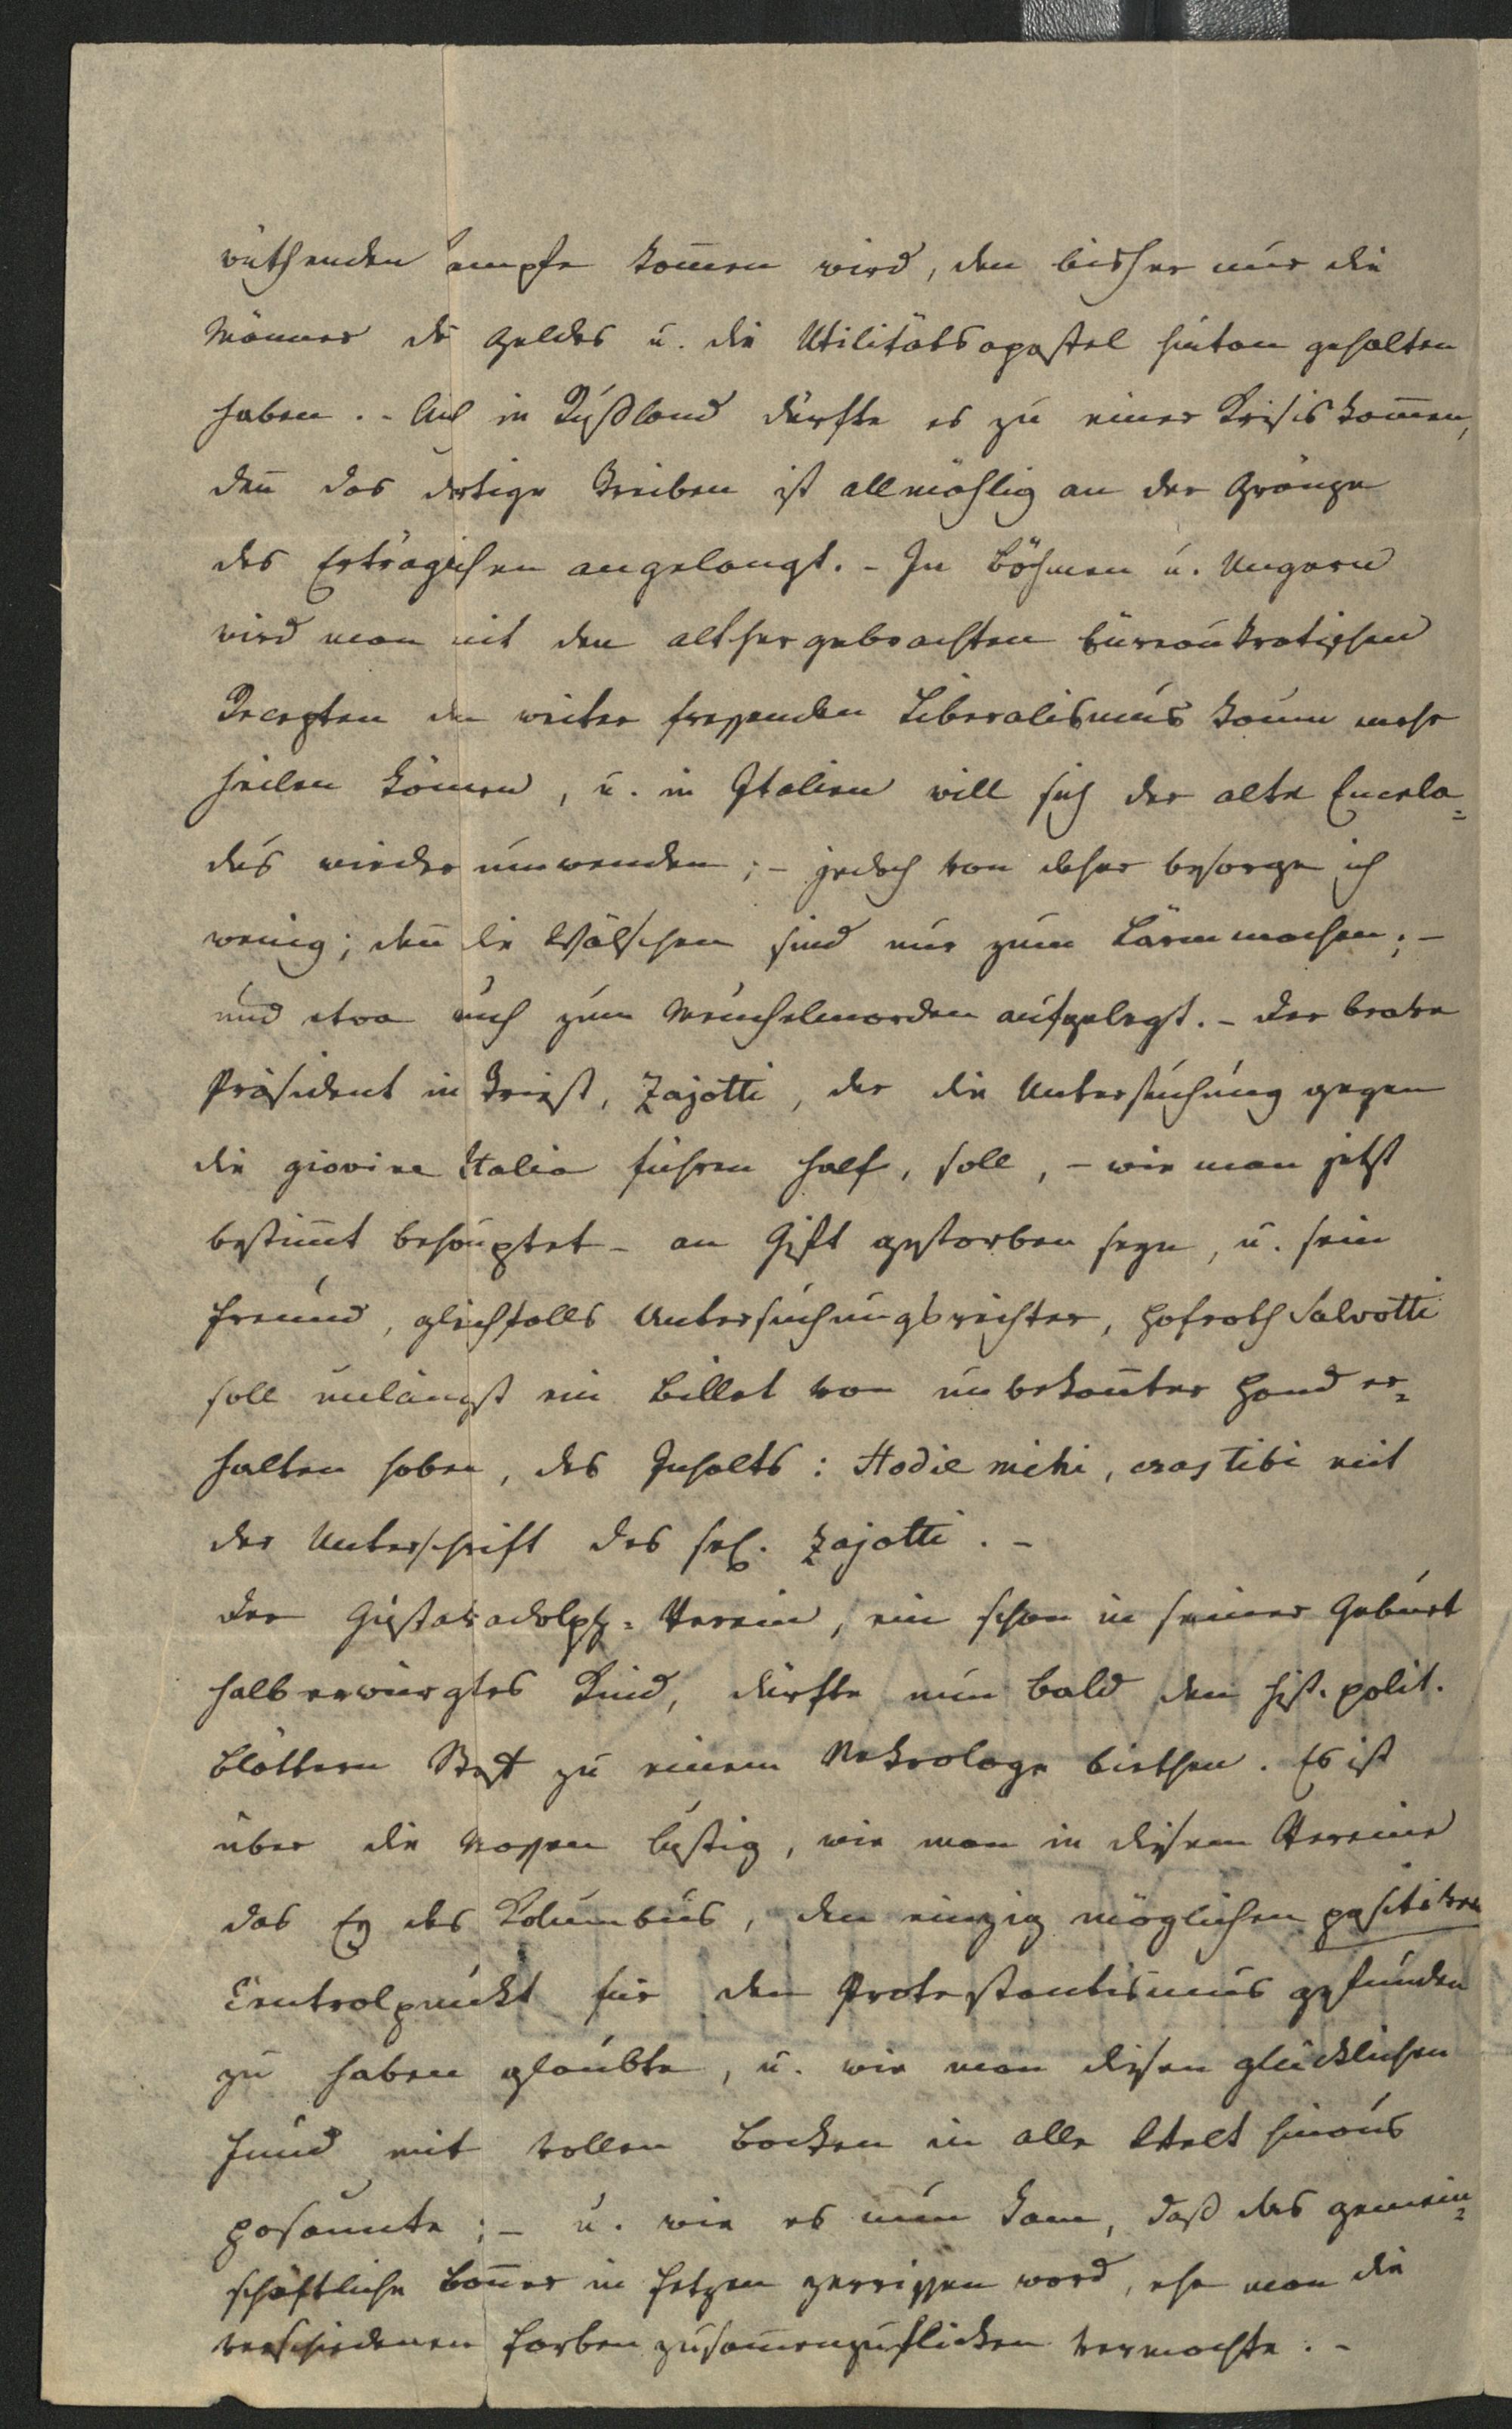 wüthenden Kampfe kom̄en wird, den bisher nur die
Männer des Geldes u. die Utilitätsapostel hintan gehalten
haben. - Auch in Rußland dürfte es zu einer Krisis kom̄en,
den̄ das dortige Treiben ist allmählig an der Gränze
des Erträglichen angelangt. - In Böhmen u. Ungarn
wird man mit den althergebrachten büreaukratischen
Recepten den weiter fressenden Liberalismus kaum mehr
heilen können, u. in Italien will sich der alte Encela=
dus wieder umwenden; - jedoch von daher besorge ich
wenig; den̄ die Wälschen sind nur zum Lärmmachen; -
und etwa auch zum Meuchelmorden aufgelegt. - Der brave
Präsident in Triest, Zajotti, der die Untersuchung gegen
die giovine Italia führen half, soll, - wie man jetzt
bestim̄t behauptet - an Gift gestorben seyn, u. sein
Freund, gleichfalls Untersuchungsrichter, Hofrath Salvotti
soll unlängst ein Billet von unbekan̄ter Hand er=
halten haben, des Inhalts: Hodie mihi, cras tibi mit
der Unterschrift des sel. Zajotti. -
Der Gustavadolph=Verein, ein schon in seiner Geburt
halb erwürgtes Kind, dürfte nun bald den hist. polit.
Blättern Stoff zu einem Nekrologe biethen. Es ist
über die Massen lustig, wie man in diesem Vereine
das Ey des Kolumbus, den einzig möglichen positiven
Centralpunkt für den Protestantismus gefunden
zu haben glaubte, u. wie man diesen glücklichen
Fund mit vollen Backen in alle Welt hinaus
posaunte; - u. wie es nun kam, daß das gemein=
schäftliche Ban̄er in Fetzen zerrissen ward, ehe man die
verschiedenen Farben zusam̄enzuflicken vermochte. -